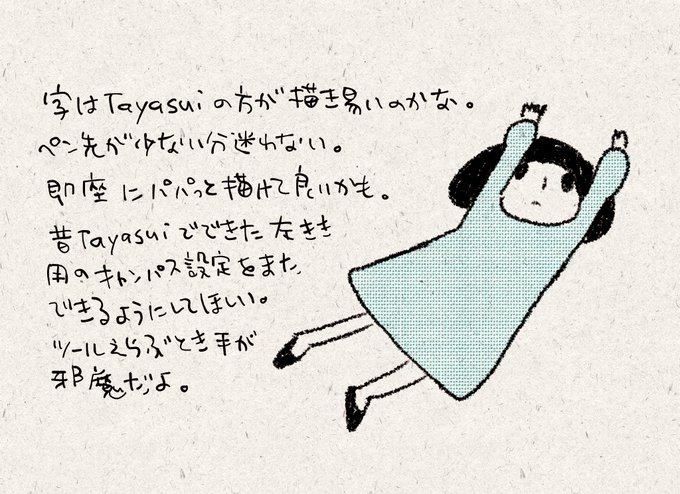 字はTayasuiの方が描き易いのかな。
ペン先が少ない分迷わない。
即座にパパっと描けて良いかも。
昔Tayasuiでできた左きき
用のキャンパス設定をまた
できるようにしてほしい。
ツールえらぶとき手が
邪魔だよ。